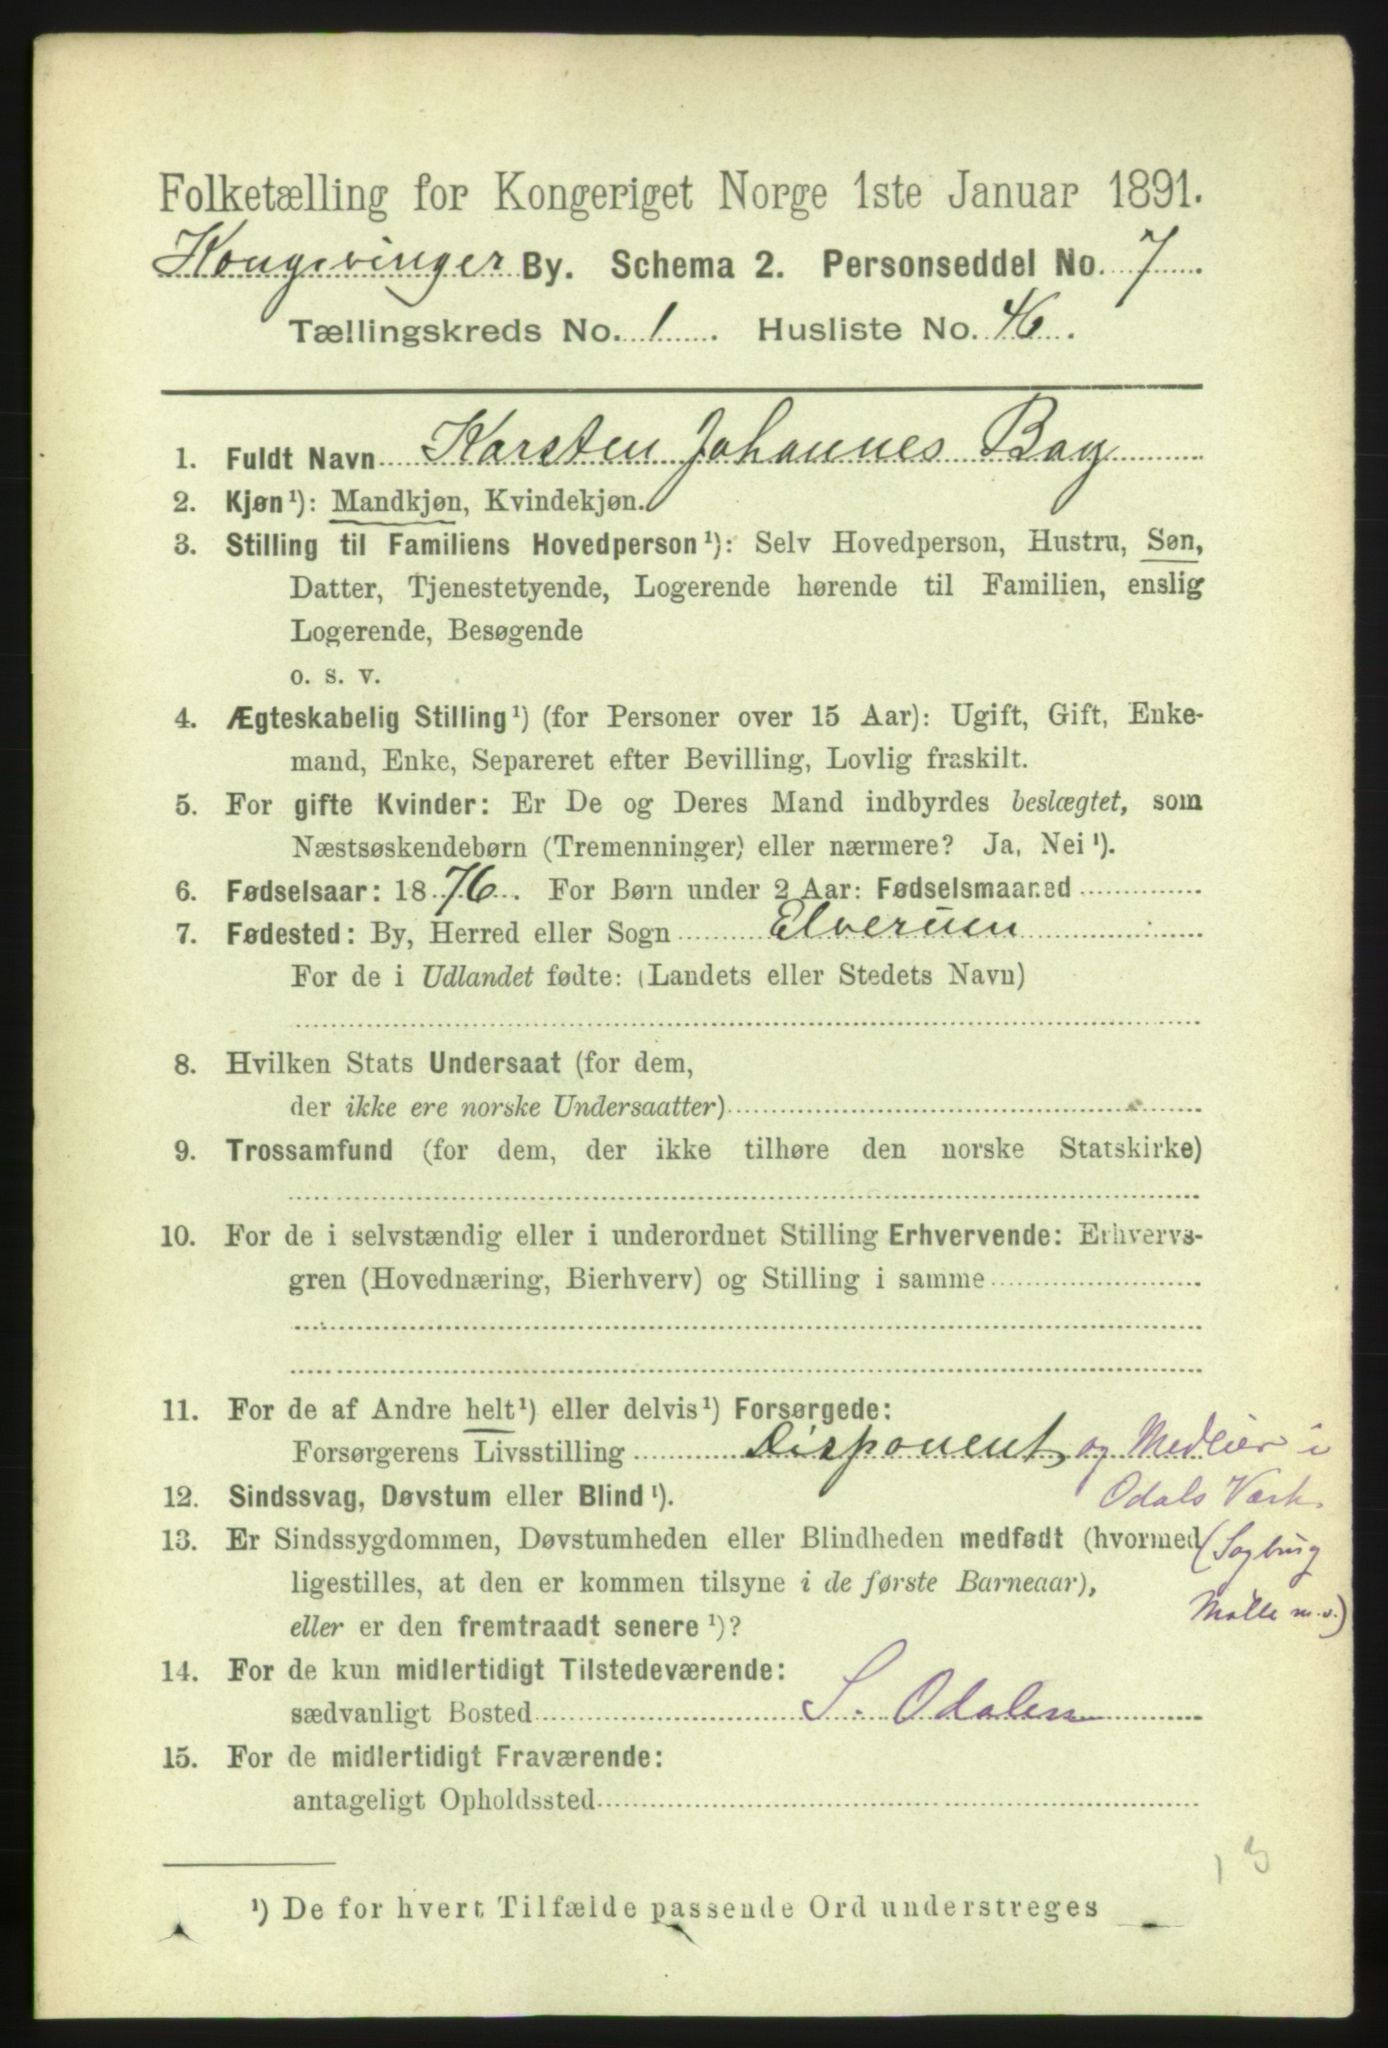 Folketælling for Kongeriget Norge 1ste Januar 1891.
Kongsvinger By. Schema 2. Personseddel No. 7
Tællingskreds No. 1. Husliste No. 46.
1. Fuldt Navn Karsten Johannes Bay
2. Kjøn¹): Mandkjøn, Kvindekjøn.
3. Stilling til Familiens Hovedperson¹): Selv Hovedperson, Hustru, Søn,
Datter, Tjenestetyende, Logerende hørende til Familien, enslig
Logerende, Besøgende
o. s. v.
4. Ægteskabelig Stilling¹) (for Personer over 15 Aar): Ugift, Gift, Enke-
mand, Enke, Separeret efter Bevilling, Lovlig fraskilt.
5. For gifte Kvinder: Er De og Deres Mand indbyrdes beslægtet, som
Næstsøskendebørn (Tremenninger) eller nærmere? Ja, Nei¹).
6. Fødselsaar: 1876. For Børn under 2 Aar: Fødselsmaaned
7. Fødested: By, Herred eller Sogn Elverum
For de i Udlandet fødte: (Landets eller Stedets Navn)
8. Hvilken Stats Undersaat (for dem,
der ikke ere norske Undersaatter)
9. Trossamfund (for dem, der ikke tilhøre den norske Statskirke)
10. For de i selvstændig eller i underordnet Stilling Erhvervende: Erhvervs-
gren (Hovednæring, Bierhverv) og Stilling i samme
11. For de af Andre helt¹) eller delvis¹) Forsørgede:
Forsørgerens Livsstilling Disponent og Medeier i
12. Sindssvag, Døvstum eller Blind¹). Odals Værk
13. Er Sindssygdommen, Døvstumheden eller Blindheden medfødt (hvormed (Sagbrug
ligestilles, at den er kommen tilsyne i de første Barneaar), Mølle m.v.)
eller er den fremtraadt senere¹)?
14. For de kun midlertidigt Tilstedeværende:
sædvanligt Bosted S. Odalen
15. For de midlertidigt Fraværende:
antageligt Opholdssted
13
¹) De for hvert Tilfælde passende Ord understreges